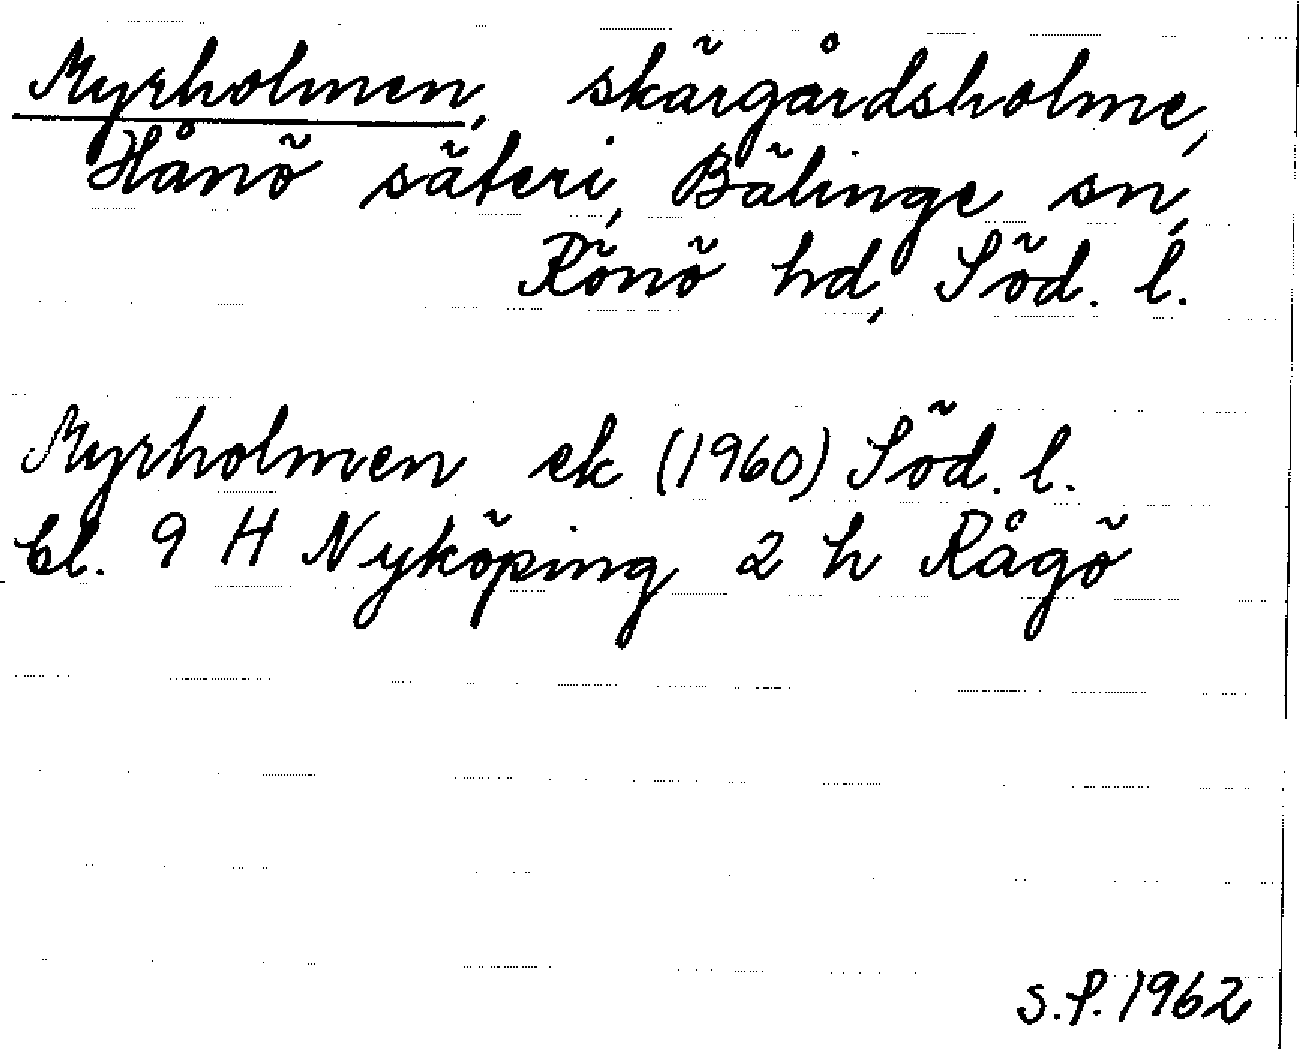 Myrholmen, skärgårdsholme,
Hånö säteri, Bälinge sn,
Rönö hd, Söd. l.
Myrholmen ek (1960) Söd. l.
bl. 9 H Nyköping 2 h Rågö
S.P. 1962